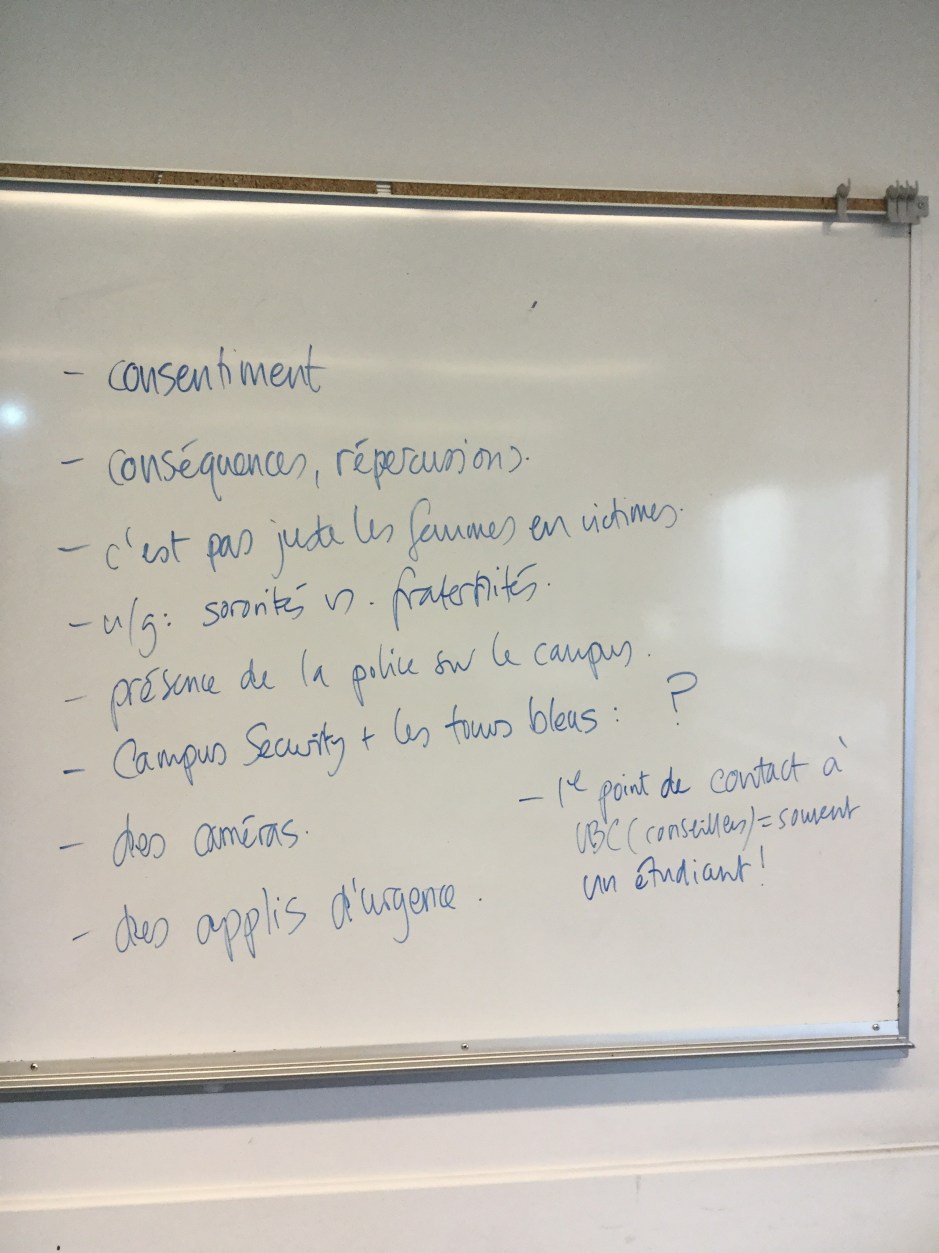 - consentiment
- conséquences, répercusions.
- c'est pas juste les femmes en victimes.
- u/g: sororités vs. fraternités.
- présence de la police sur le campus.
- Campus Security + les tours bleus : ?
- des caméras.
- des applis d'urgence.
- 1e point de contact à
UBC (conseillers) = souvent
un étudiant!